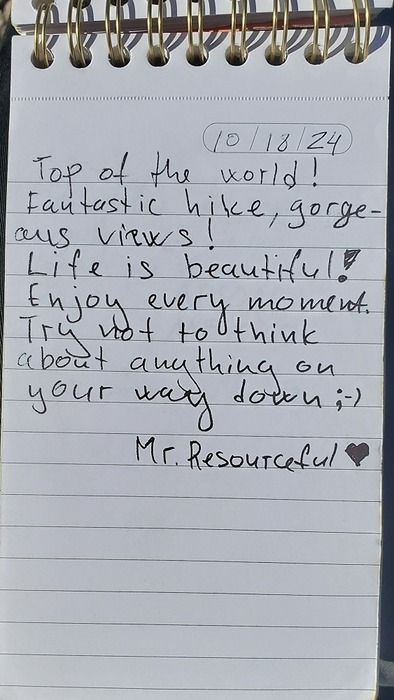 10/18/24
Top of the world!
Fantastic hike, gorge-
ous views!
Life is beautiful!
Enjoy every moment.
Try not to think
about anything on
your way down ;-)
Mr. Resourceful ♥